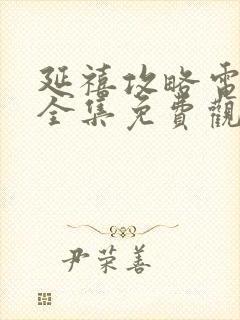 延禧攻略電
全集免費觀
尹荣善